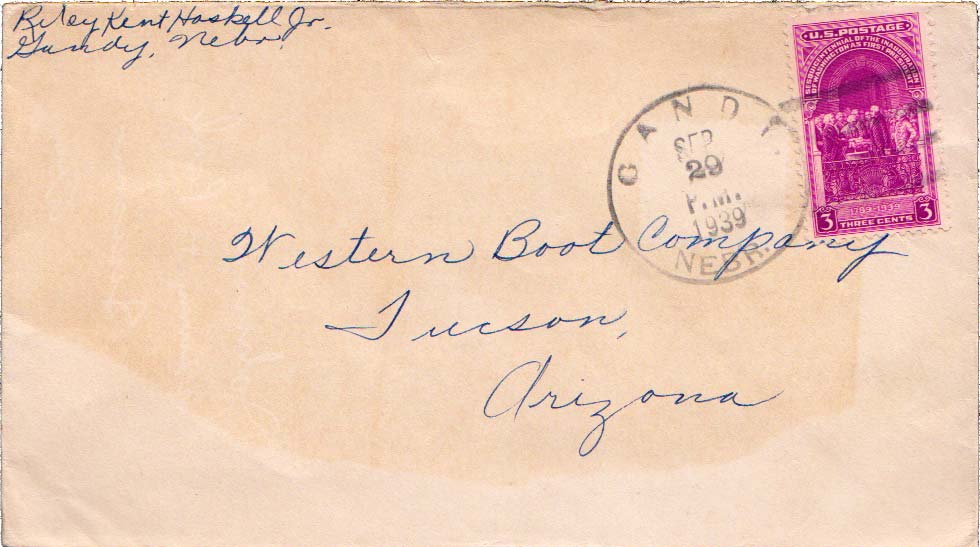 Riley Kent Haskell Jr.
Gandy, Nebr.
U.S. POSTAGE
SESQUICENTENNIAL OF THE INAUGURATION
OF WASHINGTON AS FIRST PRESIDENT
1789-1939
3 THREE CENTS 3
GANDY.
SEP
29
P.M.
1939
NEBR.
Western Boot Company
Tucson,
Arizona